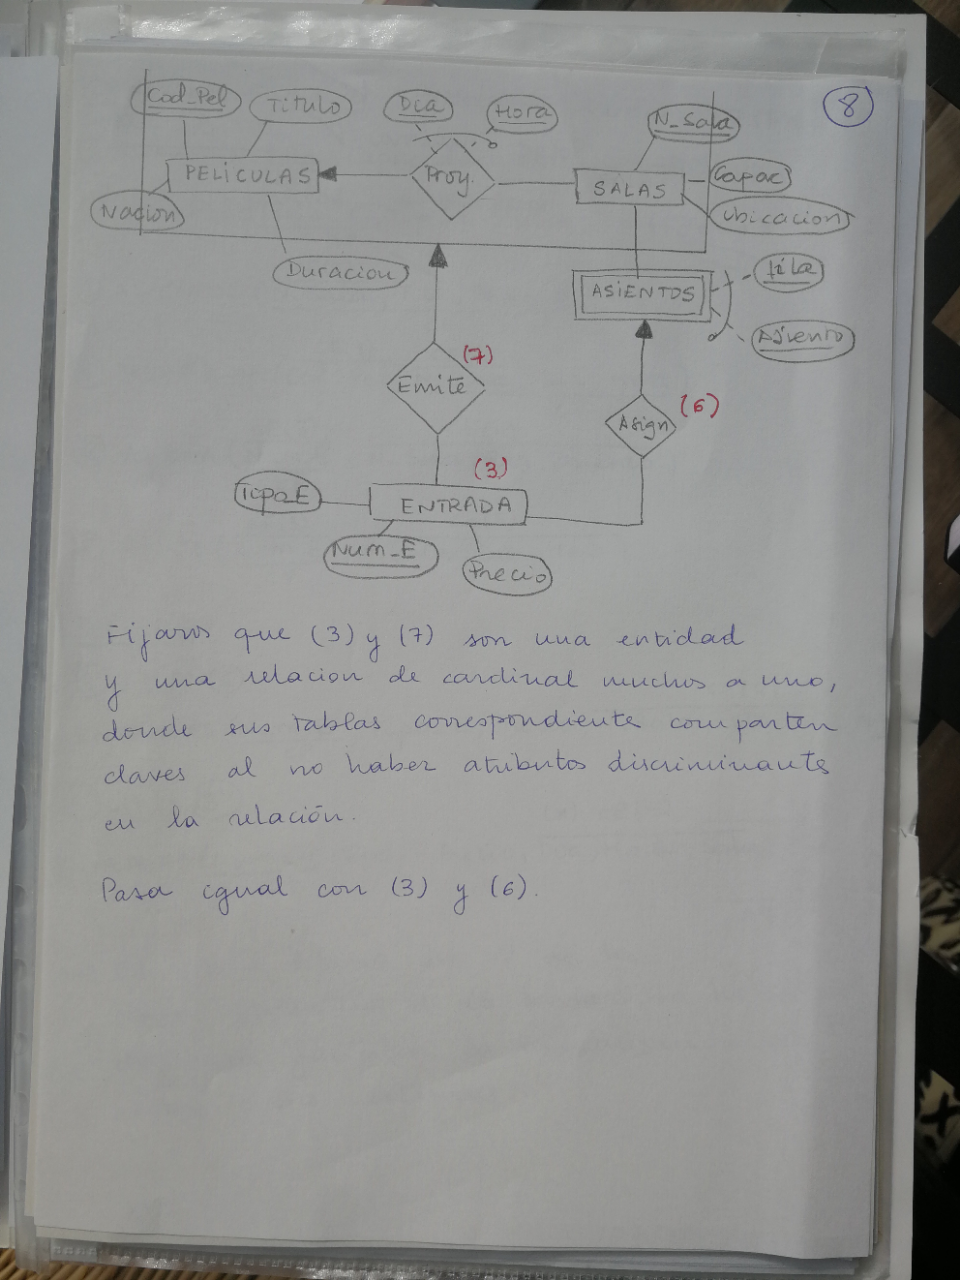 8
Cod_Pel
Titulo
Dia
Hora
N_Sala
PELICULAS
Proy.
SALAS
Capac
Nacion
Ubicacion
Duracion
ASIENTOS
fila
Asiento
Emite
(7)
Asign
(6)
(3)
Tipo_E
ENTRADA
Num_E
Precio
Fijaros que (3) y (7) son una entidad
y una relacion de cardinal muchos a uno,
donde sus tablas correspondiente comparten
claves al no haber atributos discriminants
en la relación.
Pasa igual con (3) y (6).